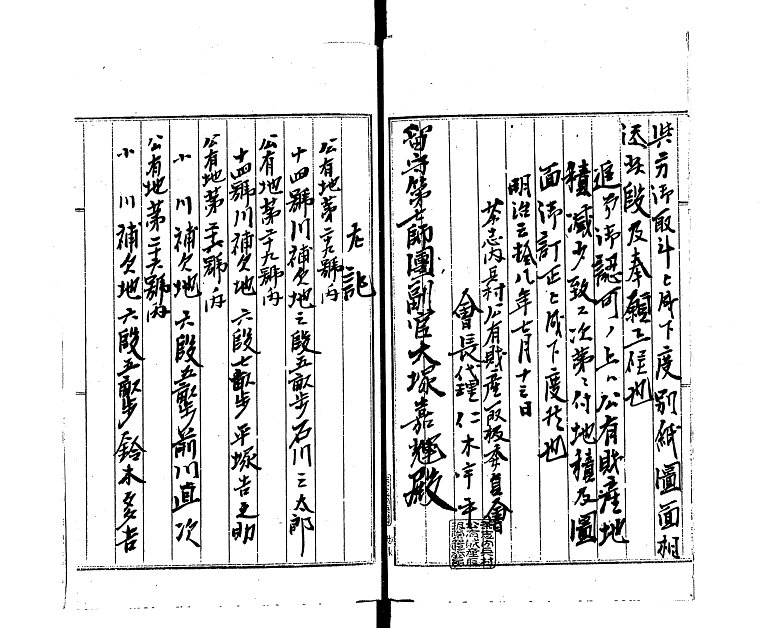 共方御取斗上成下度別紙圖面相
送此段及奉願上候也
追テ御認可ノ上ハ公有財産地
積減少致シ次第ニ付地積及圖
面御訂正上成下度候也
明治三拾八年七月十三日
茶志内兵村公有財産取扱委員會
會長代理仁木
留守第七師團副官大塚嘉輝殿
左記
公有地第二十九號ノ内
十四號川補欠地三段五畝步石川三太郎
公有地第二十九號ノ内
十四號川補欠地六段七畝步平塚吉之助
公有地第三十號ノ内
小川補欠地六段五畝步前川直次
公有地第二十六號ノ内
小川補欠地六段五畝步鈴木多吉